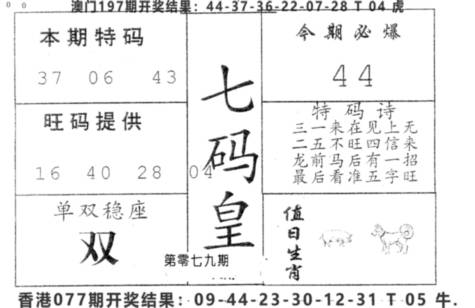 澳门197期开奖结果：44-37-36-22-07-28 T 04 虎
本期特码
37 06 43
旺码提供
16 40 28 04
单双稳座
双
七码皇
第零七九期
今期必爆
44
特码诗
三一来在见上无
二五不旺四信来
龙前马后有一招
最后看准五字旺
值日生肖
香港077期开奖结果：09-44-23-30-12-31 T 05 牛.